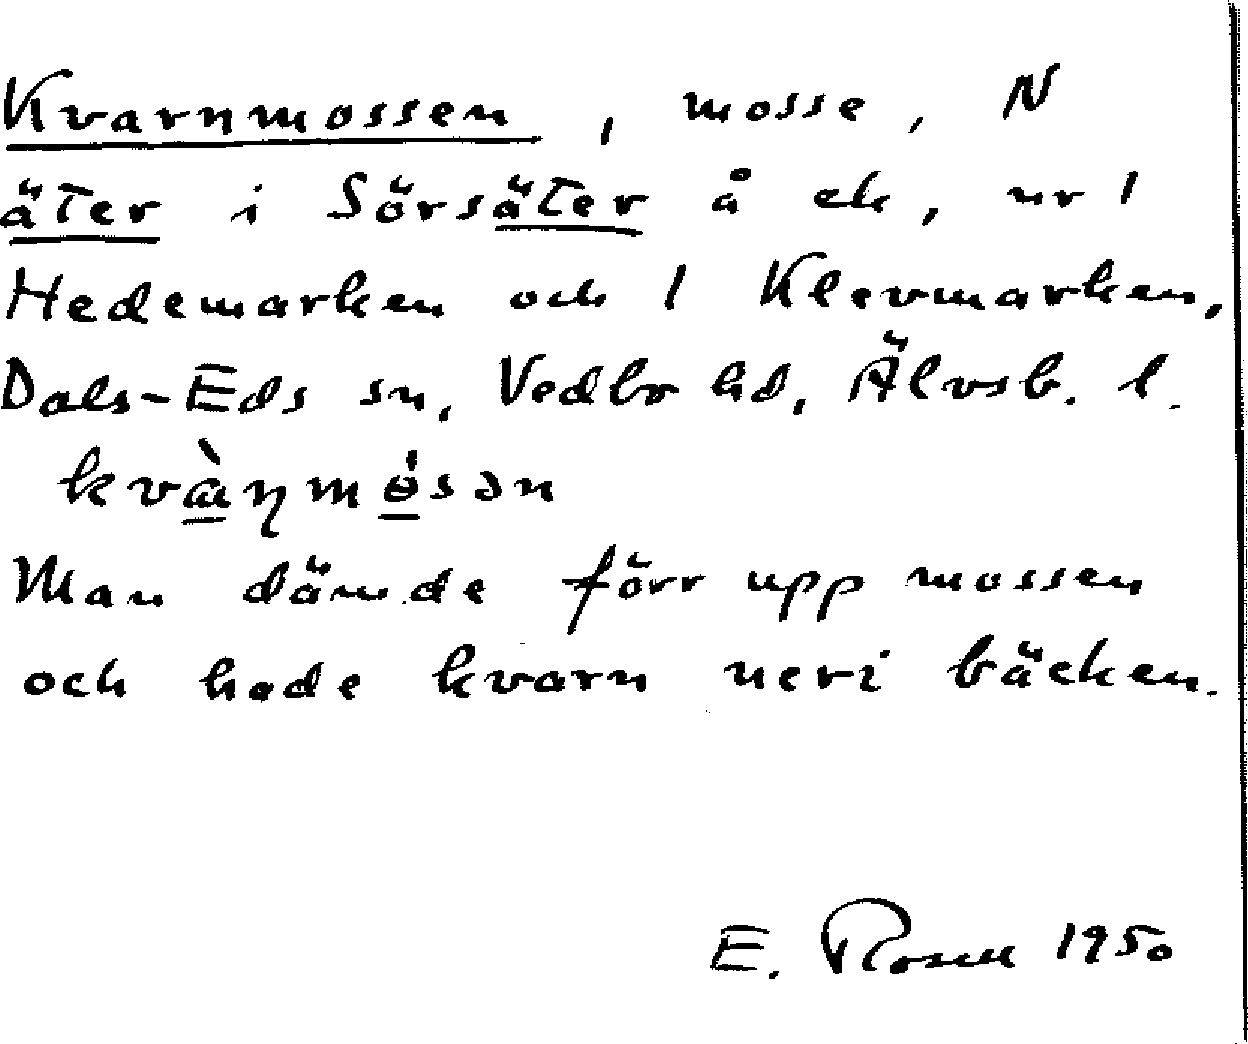 Kvarnmossen, mosse, N
äter i Sörsäter å ek, nr 1
Hedemarken och 1 Klevmarken,
Dals-Eds sn, Vedbo hd, Älvsb. l.
kvà̱ɳmȯ̱sən
Man dämde förr upp mossen
och hade kvarn neri bäcken.
E. Rosell 1950